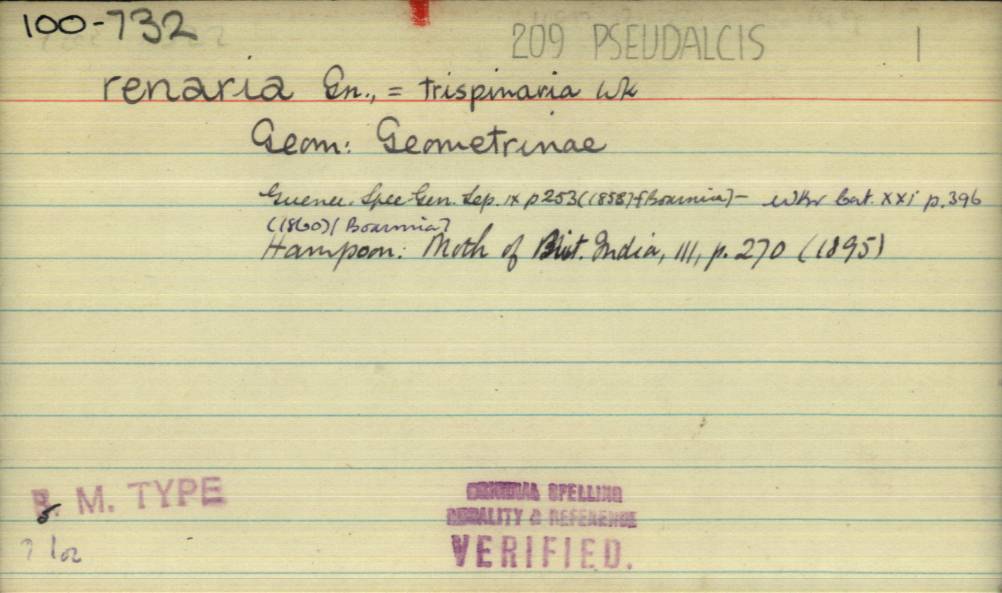 100-732
209 PSEUDALCIS 1
renaria Gn., = trispinaria Wk
Geom: Geometrinae
Guenee. Spec Gen. Lep. ix p 253 (1858) [Boarmia] - Wkr Cat. xxi p. 396
(1860) [Boarmia]
Hampson: Moth of Brit. India, III, p. 270 (1895)
B. M. TYPE
ORIGINAL SPELLING
LOCALITY & REFERENCE
VERIFIED.